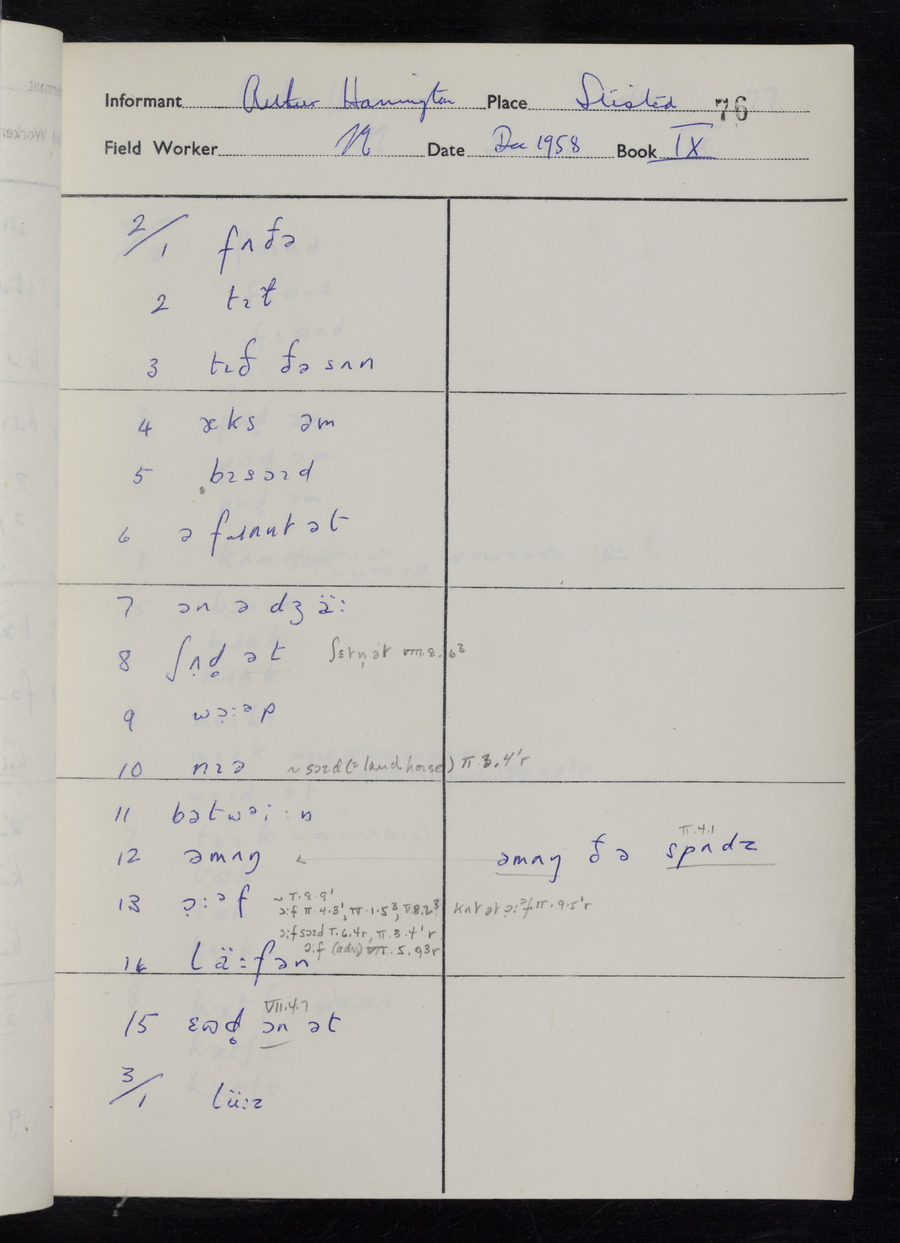 Informant Arthur Harrington Place Stisted 76
Field Worker Date Dec 1958 Book IX
2/1 fʌðə
2 tɪt
3 tɪð ðə sʌn
4 æks əm
5 bɪsəɪd
6 ə fɹʌnt ət
7 ən ə dʒä:
8 ʃʌd̥ ət ʃɛtn̩ ət VIII.8.6³
9 wɔ̣:əp
10 nɪə ~ səɪd (= land horse) II.3.4'r
11 bətwəi:n
12 əmʌŋ əmʌŋ ðə spʌdz II.4.1
13 ɔ̣:əf ~ I.8.9'
ɔ:f II.4.3', III.1.5³, V.8.2³ kʌt ət ɔ:əf II.9.5'r
ɔ:f səɪd I.6.4r, II.3.4'r
14 lä:fən ɔ:f (adv) VIII.5.9³r
15 ɛɷd̥ ən ət VII.4.7
3/1 lü:z